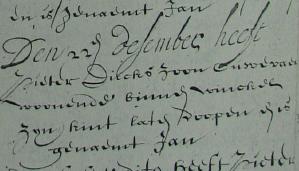 en is genaemt Jan
Den 22 desember heeft
Pieter Dircks Zoon
woonende binnen winckel
Zyn kint laten doopen en is
genaemt Jan
heeft Pieter